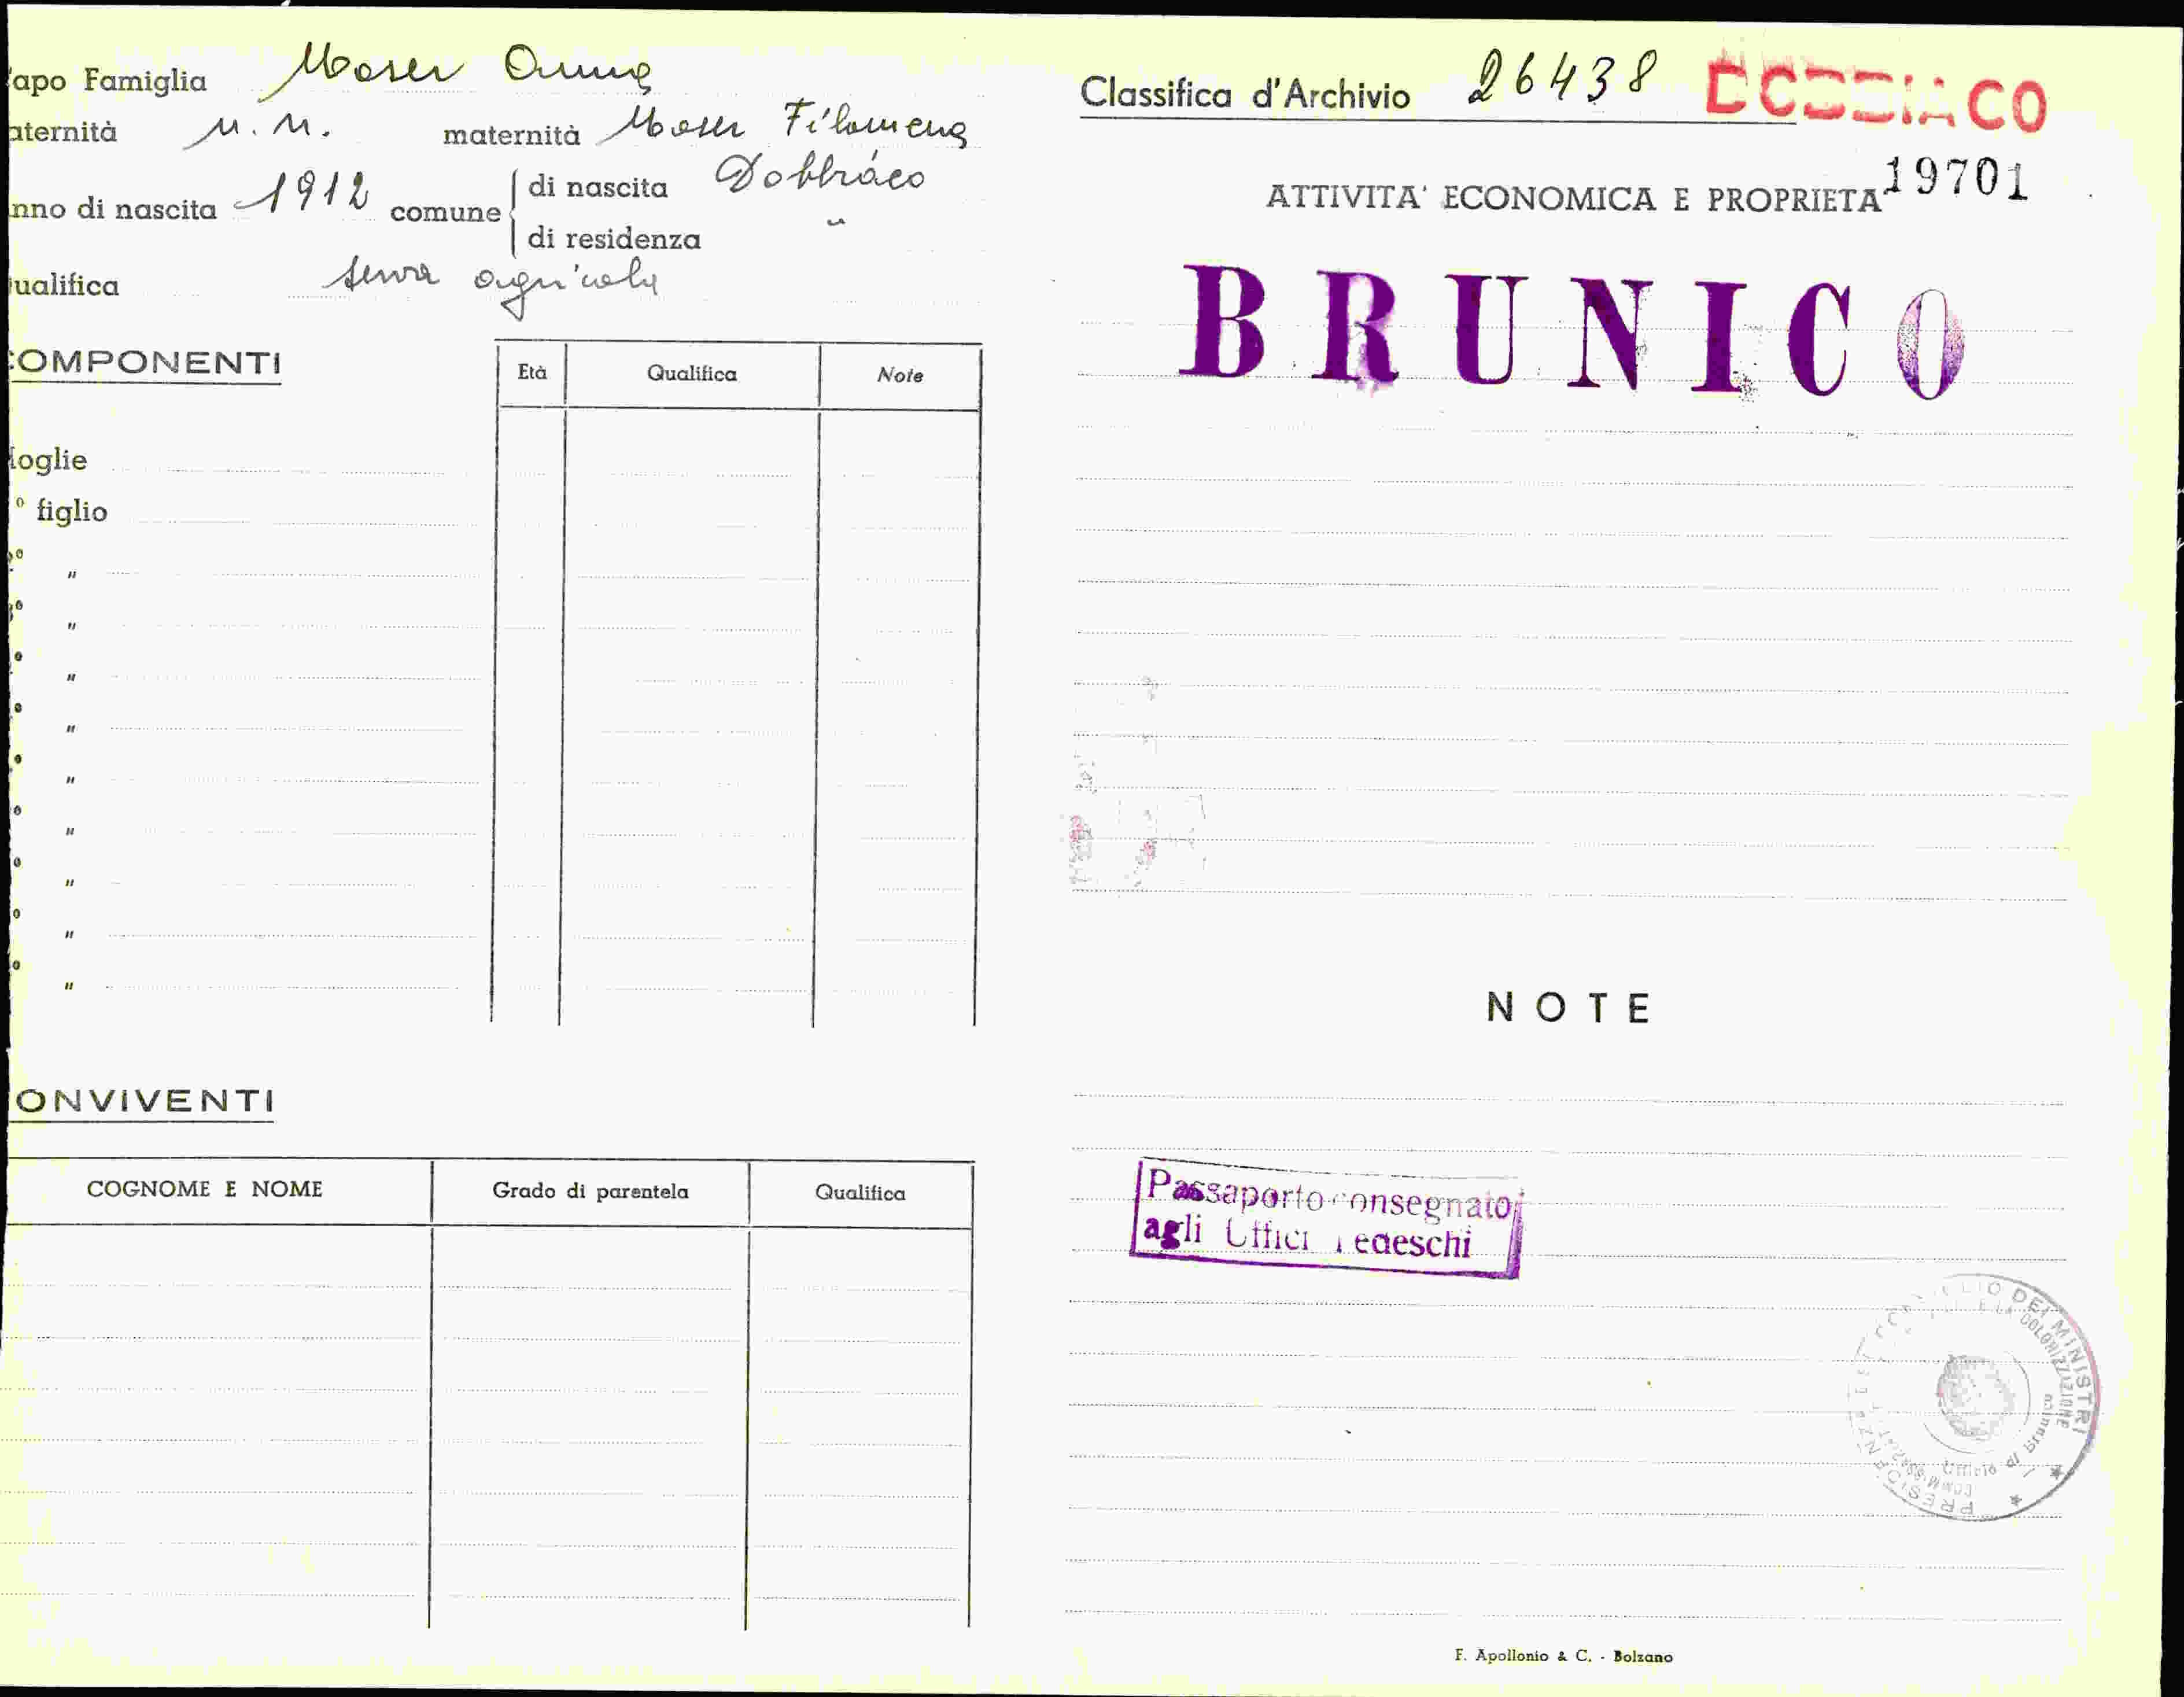 apo Famiglia Moser Anna
aternità N. N. maternità Moser Filomena
nno di nascita 1912 comune di nascita Dobbiaco
di residenza "
ualifica serva agricola
OMPONENTI
Età Qualifica Note
oglie
° figlio
° "
° "
° "
° "
° "
° "
° "
° "
° "
ONVIVENTI
COGNOME E NOME Grado di parentela Qualifica
Classifica d'Archivio 26438 DOBBIACO
19701
ATTIVITA' ECONOMICA E PROPRIETA'
BRUNICO
NOTE
Passaporto consegnato
agli Uffici Tedeschi
PRESIDENZA DEL CONSIGLIO DEI MINISTRI
COLONIZZAZIONE
Ufficio di Brunico
F. Apollonio & C. - Bolzano